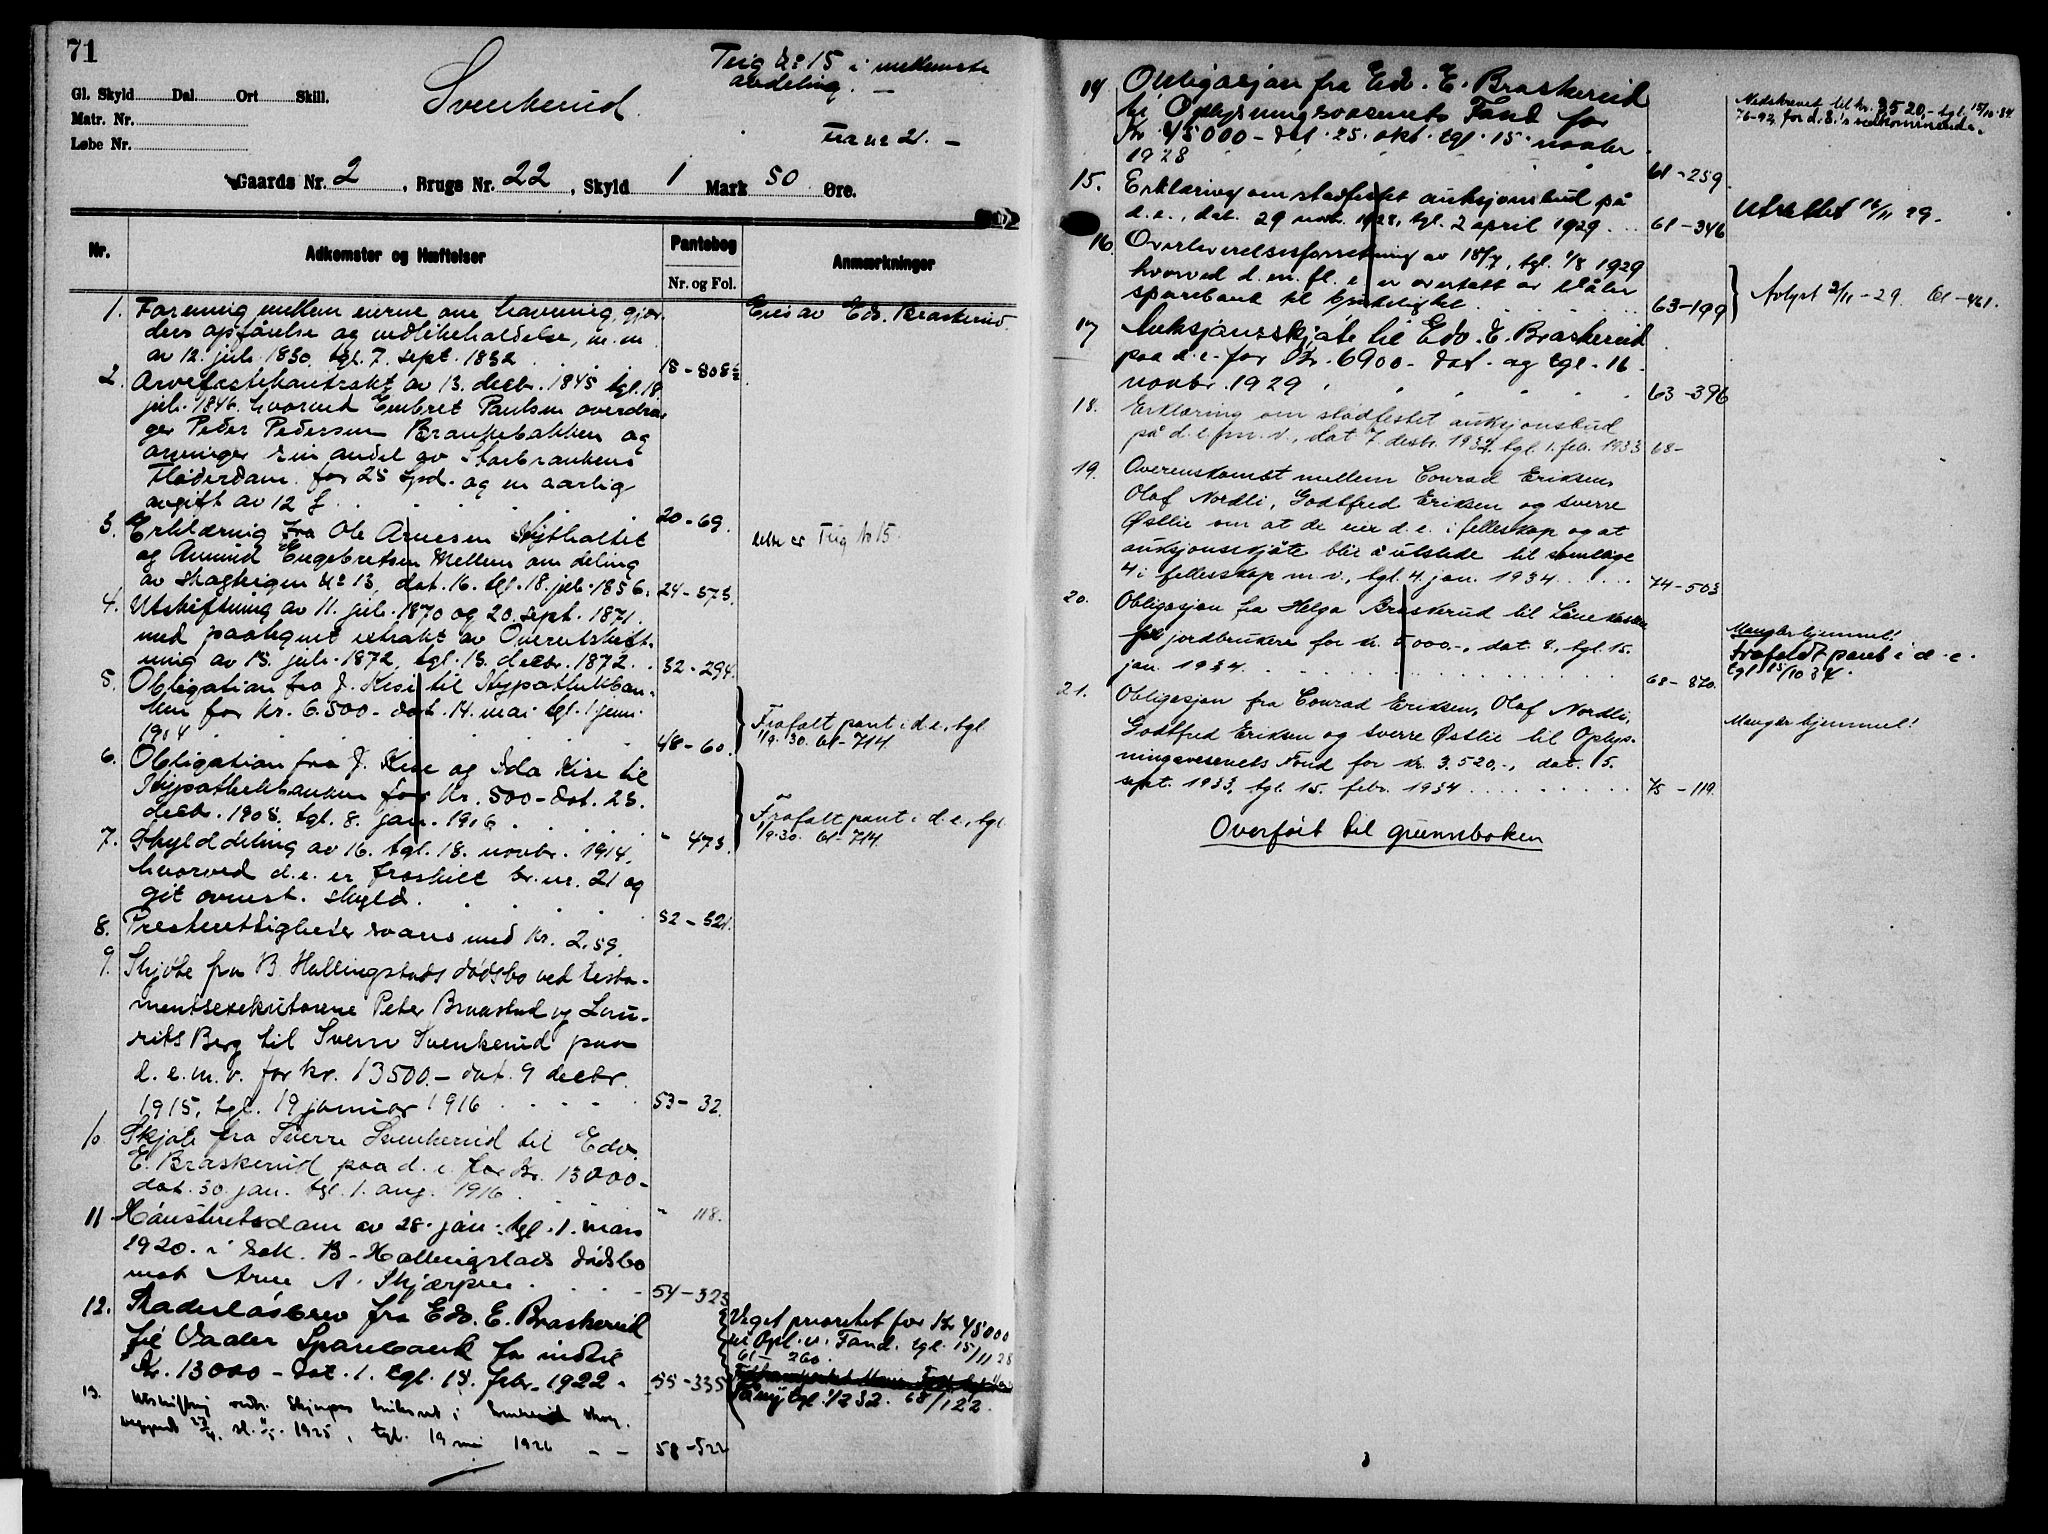 71
Gl. Skyld Dal. Ort Skill.
Matr. Nr.
Løbe Nr.
Svenkerud
Teig № 15 i
avdeling. —
Gaards Nr. 2, Brugs Nr. 22, Skyld 1 Mark 50 Øre.
Nr. Adkomster og Hæftelser Pantebog Anmærkninger
Nr. og Fol.
1. Forening mellem eierne om havning, gjær-
ders opførelse og vedlikeholdelse, m. m.
av 12. juli 1830, tgl. 7. sept. 1832 18-808½
Eies av Edv. Braskerud.
2. Arvefæstekontrakt av 13. decbr. 1845 tgl. 18
juli 1846 hvorved Embret Paulsen overdra-
ger Peder Pedersen Brankebakken og
arvinger sin andel av Storbrankens
Fløderdam for 25 Spd. og en aarlig
avgift av 12 ß 20-69.
3. Erklæring fra Ole Arnesen
og Amund Engebretsen Mellem om deling
av skogteigen № 13, dat. 16. tgl. 18. juli 1856. 24-573.
dette er Teig № 15.
4. Utskiftning av 11. juli 1870 og 20. sept. 1871.
med paategnet extrakt av Overutskift-
ning av 15. juli 1872, tgl. 13. decbr. 1872. 32-294.
5. Obligation fra J. Kise til Hypothekban-
ken for Kr. 6.500- dat. 14. mai tgl. 1 juni
1904 48-60.
Frafalt pant i d.e., tgl.
1/9.30. 61-714.
6. Obligation fra J. Kise og Ida Kise til
Hypothekbanken for Kr. 500- dat. 23.
decbr. 1905. tgl. 8. jan. 1906 " 473.
Frafalt pant i d.e., tgl.
1/9.30 61-714.
7. Skylddeling av 16. tgl. 18. novbr. 1914,
hvorved d.e. er fraskilt br.nr. 21 og
git ovnst. skyld. 52-521.
8. Presterettigheder svares med Kr. 2,59.
9. Skjøte fra B. Hallingstads dødsbo ved testa-
mentseksekutorene Peter Braastad og Lau-
rits Berg til Sverre Svenkerud paa
d.e.m.v. for kr. 13500.- dat. 9 decbr.
1915, tgl. 19 januar 1916 53-32.
10 Skjøte fra Sverre Svenkerud til Edv.
E. Braskerud paa d.e. for Kr. 13000-
dat. 30. jan. tgl. 1. aug. 1916. " 118.
11 Høiesteretsdom av 28. jan. tgl. 1. mars
1920. i sak. B. Hallingstads dødsbo
mot Arne A. Skjærpen 54-323
12. Skadesløsbrev fra Edv. E. Braskerud
til Vaaler Sparebank for indtil
Kr. 13000- dat. 1. tgl. 15. febr. 1922. 55-335
Veget prioritet for Kr 45000
til Opl. v. Fond. tgl. 15/11 28
61-260.
På ny tgl. 1/2 32. 68/122.
13. Utskiftning vedr. i skog.
sl. 1925, tgl. 19 mai 1926 58-522
14 Obligasjon fra Edv. E. Braskerud
til Oplysningsvæsenets Fond for
Kr. 45000- dat. 25. okt. tgl. 15. novbr
1928 61-259.
Nedskrevet til kr. 3520,- tgl. 15/10-34
76-92 for d.e.'s vedkommende.
15. Erklæring om stadfestet auksjonsbud på
d.e., dat. 29 nov. 1928, tgl. 2 april 1929 61-346
Utslettet 16/11 29.
16. Overleverelsesforretning av 18/7, tgl. 1/8 1929
hvorved d.e. m.fl. e. er overtatt av Våler
sparebank til brukelighet 63-199
Avlyst 2/11-29. 61-461.
17 Auksjonsskjøte til Edv. E. Braskerud
paa d.e. for Kr. 6900- dat. og tgl. 16.
novbr. 1929 63-396
18. Erklæring om stadfestet auksjonsbud
på d.e. m.v., dat. 7. desbr. 1932, tgl. 1. febr. 1933 68-
19. Overenskomst mellem Conrad Eriksen,
Olaf Nordli, Godtfred Eriksen og Sverre
Østlie om at de eier d.e. i felleskap og at
auksjonsskjøte blir å utstede til samtlige
4 i fellesskap m.v., tgl. 4. jan. 1934 74-503
20. Obligasjon fra Helga Braskerud til Lånekassen
for jordbrukere for kr. 5000.-, dat. 8., tgl. 15.
jan. 1934 68-870.
Mangler hjemmel!
Frafaldt pant i d.e.
tgl. 15/10 34.
21. Obligasjon fra Conrad Eriksen, Olaf Nordli,
Godtfred Eriksen og Sverre Østlie til Oplys-
ningsvesenets Fond for kr. 3.520,-, dat. 5.
sept. 1933, tgl. 15. febr. 1934 75-119.
Mangler hjemmel!
Overført til grunnboken